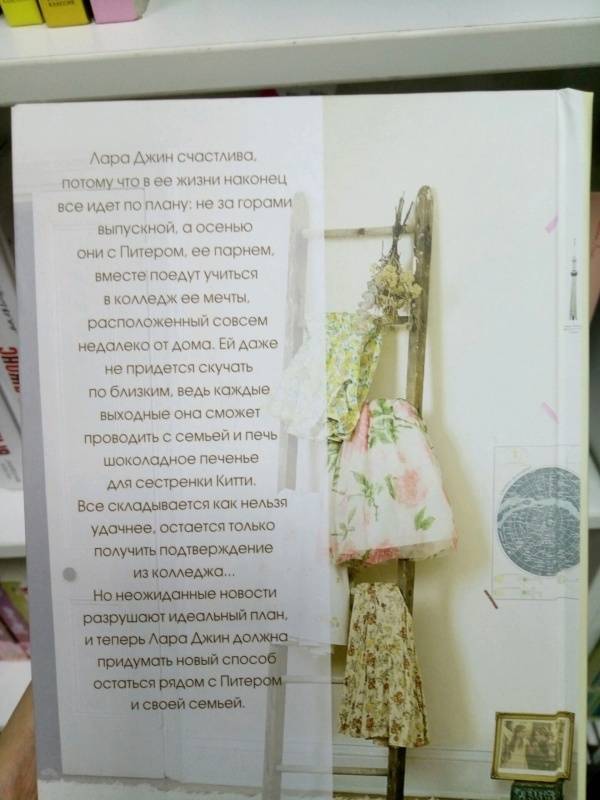 Лара Джин счастлива,
потому что в ее жизни наконец
все идет по плану: не за горами
выпускной, а осенью
они с Питером, ее парнем,
вместе поедут учиться
в колледж ее мечты,
расположенный совсем
недалеко от дома. Ей даже
не придется скучать
по близким, ведь каждые
выходные она сможет
проводить с семьей и печь
шоколадное печенье
для сестренки Китти.
Все складывается как нельзя
удачнее, остается только
получить подтверждение
из колледжа...
Но неожиданные новости
разрушают идеальный план,
и теперь Лара Джин должна
придумать новый способ
остаться рядом с Питером
и своей семьей.